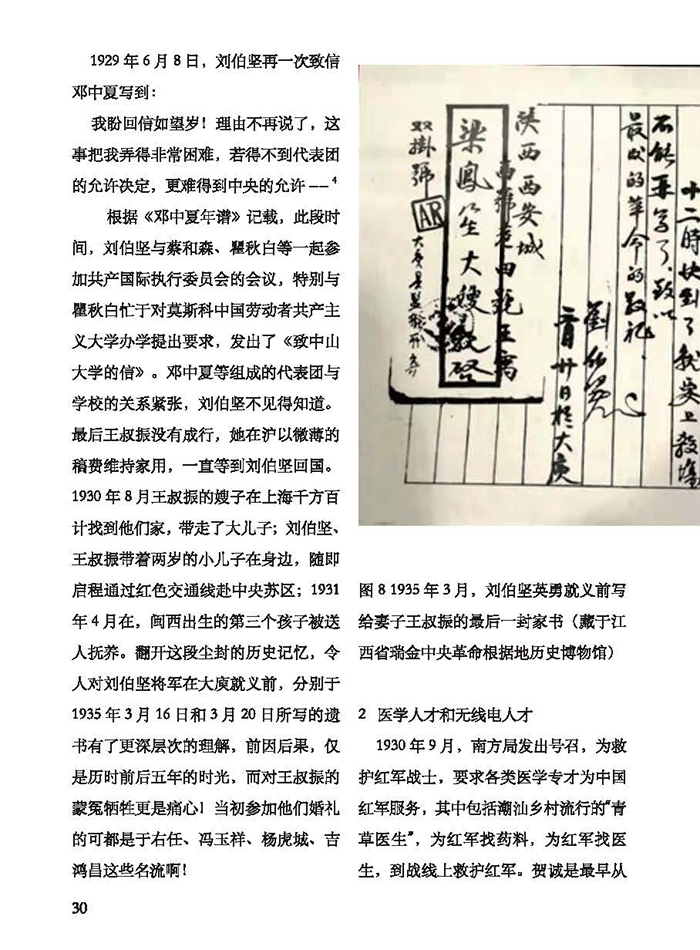 1929 年 6 月 8 日，刘伯坚再一次致信
邓中夏写到：
我盼回信如望岁！理由不再说了，这
事把我弄得非常困难，若得不到代表团
的允许决定，更难得到中央的允许——4
根据《邓中夏年谱》记载，此段时
间，刘伯坚与蔡和森、瞿秋白等一起参
加共产国际执行委员会的会议，特别与
瞿秋白忙于对莫斯科中国劳动者共产主
义大学办学提出要求，发出了《致中山
大学的信》。邓中夏等组成的代表团与
学校的关系紧张，刘伯坚不见得知道。
最后王叔振没有成行，她在沪以微薄的
稿费维持家用，一直等到刘伯坚回国。
1930 年 8 月王叔振的嫂子在上海千方百
计找到他们家，带走了大儿子；刘伯坚、
王叔振带着两岁的小儿子在身边，随即
启程通过红色交通线赴中央苏区；1931
年 4 月在，闽西出生的第三个孩子被送
人抚养。翻开这段尘封的历史记忆，令
人对刘伯坚将军在大庾就义前，分别于
1935 年 3 月 16 日和 3 月 20 日所写的遗
书有了更深层次的理解，前因后果，仅
是历时前后五年的时光，而对王叔振的
蒙冤牺牲更是痛心！当初参加他们婚礼
的可都是于右任、冯玉祥、杨虎城、吉
鸿昌这些名流啊！
十二時快到了就要上殺場
不能再写了，致以
最后的革命的敬礼
劉伯堅
三月廿日於大庾
陕西西安城
梁鳳笙大嫂啓
双掛號
AR
图 8 1935 年 3 月，刘伯坚英勇就义前写
给妻子王叔振的最后一封家书（藏于江
西省瑞金中央革命根据地历史博物馆）
2 医学人才和无线电人才
1930 年 9 月，南方局发出号召，为救
护红军战士，要求各类医学专才为中国
红军服务，其中包括潮汕乡村流行的“青
草医生”，为红军找药料，为红军找医
生，到战线上救护红军。贺诚是最早从
30